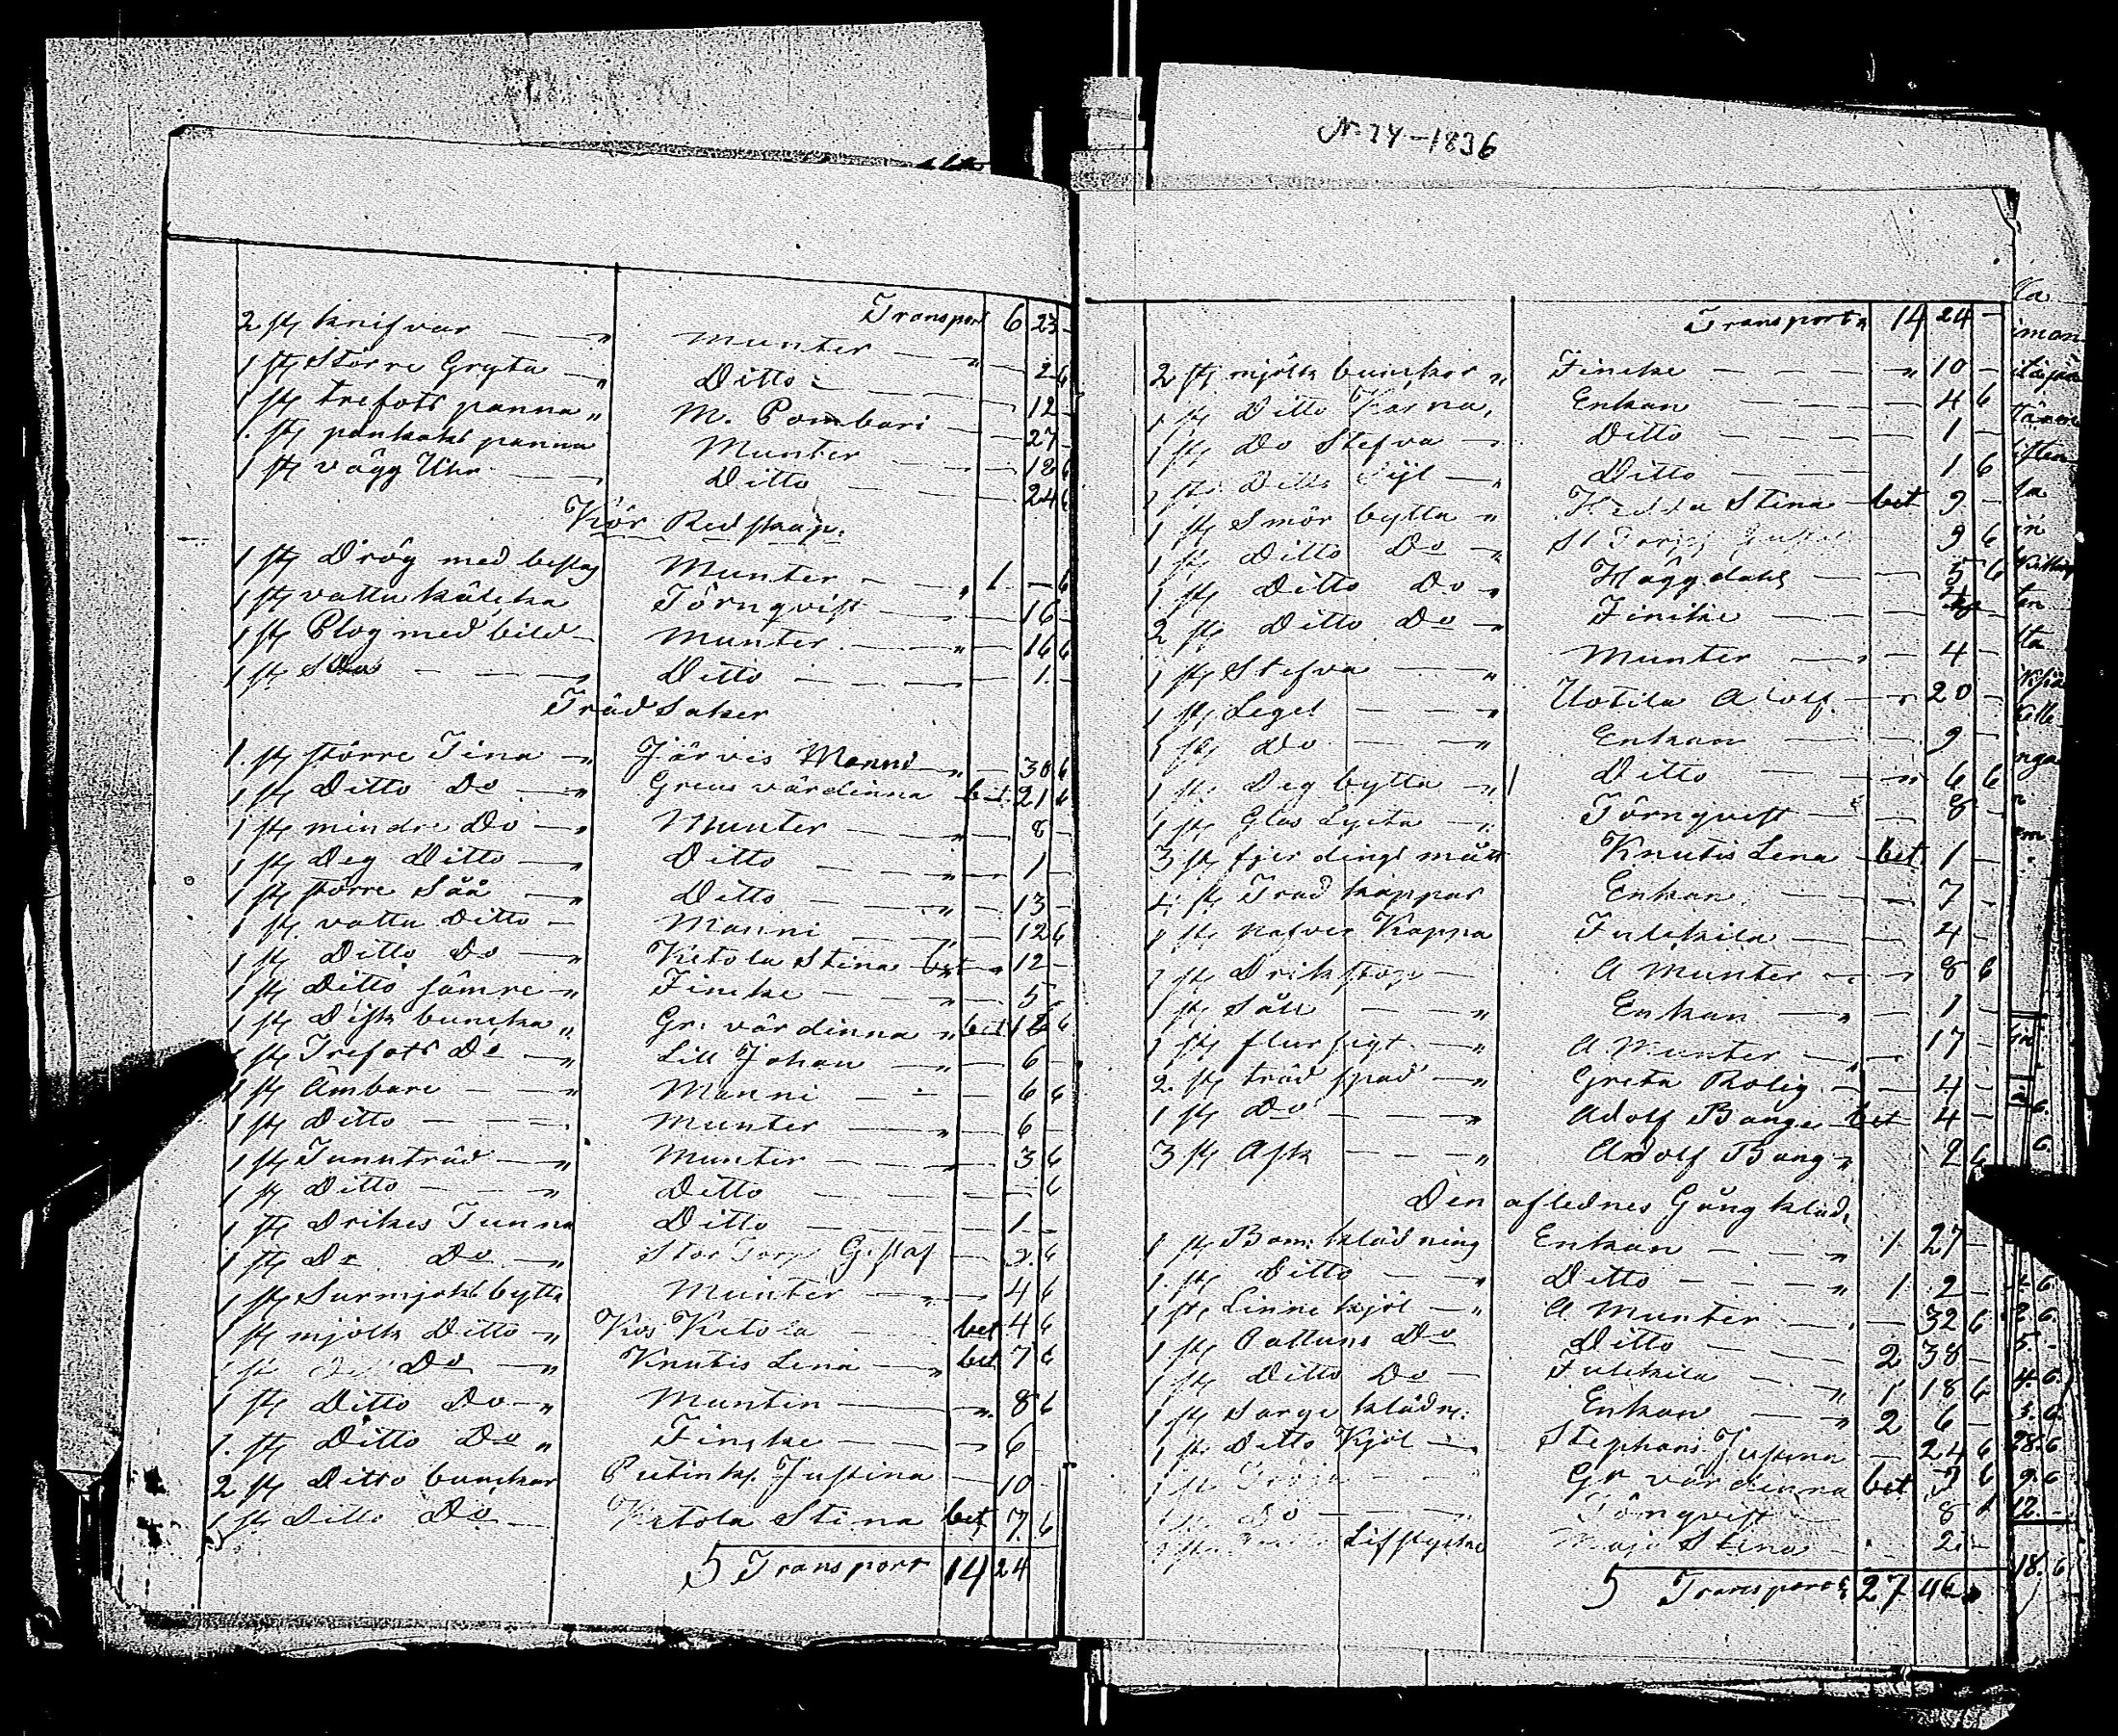 Transport 6 23 -
2 st knifvar — " Munter — " — 2 6
1 st Större Gryta — " Ditto — 12 -
1 st trefots panna " M. Pombari — 27 -
1. st pankaks panna Munter — 18 6
1 st vägg Uhr — Ditto — 24 6
Kör Redskap.
1 st Drög med beslag Munter — " 1 — 6
1 st vattu kälcka Törnqvist — 16 -
1 st Plog med bild — Munter — " — 16 6
1 st — " Ditto — 1. -
Träd Saker
1. st större Tina — " Järvis Manni — " — 30 6
1 st Ditto Do — " Greus värdinna bet. 21 6
1 st mindre Do — " Munter — " — 8 -
1 st Deg Ditto — " Ditto — " — 1 -
1 st större Såå — " Ditto — " — 13 -
1 st. vattu Ditto — Manni — " — 12 6
1 st Ditto Do — " Ketola Stina bet " 12 -
1 st Ditto sämre — " Fincke — " — 5 -
1 st Disk buncka " Gr: värdinna " bet 18 6
1 st Trefots Do — " Lill Johan — " — 6 -
1 st Ämbare — " Manni — 6 6
1 st Ditto — Munter — " — 6 -
1 st Tunnträd — " Munter — 3 6
1 st Ditto — " Ditto — 6
1 st Drikes Tunna Ditto — 1 -
1 st Do Do — " Stor Torp Gustaf — 3. 6
1 st Surmjolks bytta Munter — 4 6
1 st mjölk Ditto — " Kos Ketola bet 4 6
1 st Do — " Knutis Lena — " bet 7 6
1 st Ditto Do — " Munter — " 8 6
1. st Ditto Do " Fincke — " 6 -
2 st Ditto bunckar Justina — 10 -
1 st Ditto Do — Ketola Stina bet 7 6
S Transport 14 24
N. 74-1836
Transport " 14 24 -
2 st mjölk bunckor " Fincke — " 10 -
1 st Ditto Kärna, Enkan — 4 6
1 st Do Stefva — Ditto — 1 -
1 st Ditto — " Ditto — 1 6
1 st Smör bytta " Hedda Stina — bet 9 -
1 st Ditto Do — " 9 6
1 st Ditto Do " Häggdahl — 5 6
2 st Ditto Do " Fincke —
1 st Stefva — " Munter — 4 -
1 st Legel — " Uotila Adolf — " 20 -
1 st Do — " Enkan — 9 -
1 st Deg bytta — " Ditto — " 6 6
1 st Glas Lycta — " Törnqvist — 8 -
3 st fjerdings mått Knutis Lena bet 1 -
4 st Träd kappar Enkan — 7 -
1 st nafver Kappa — 4 -
1 st Drikstop — A Munter — " 8 6
1 st Såll — " Enkan — " — 1 -
1 st flur sigt — " A. Munter — " 17 -
2. st träd spad — " Greta Rolig — 4 -
1 st Do — " Adolf Bange bet 4 -
3 st Ask — " Adolf Bang " 2 6
Den aflednes Gång kläd.
1 st Bom: klädning Enkan — " 1 27 -
1. st Ditto — " Ditto — " 1 2 -
1 st Linne kjol — " A Munter — 32 6
1 st Cattuns Do Ditto — 2 38 -
1 st Ditto Do — " 1 18 6
1 st Sarge klädn: Enkan — " 2 6 -
1 st Ditto Kjol — Stephans Justina — 24 6
1 st Gr värdinna bet 6
1 st Do — Törnqvist — 8
1 st Lifstycke Maja Stina — 2 -
S Transport 27 46